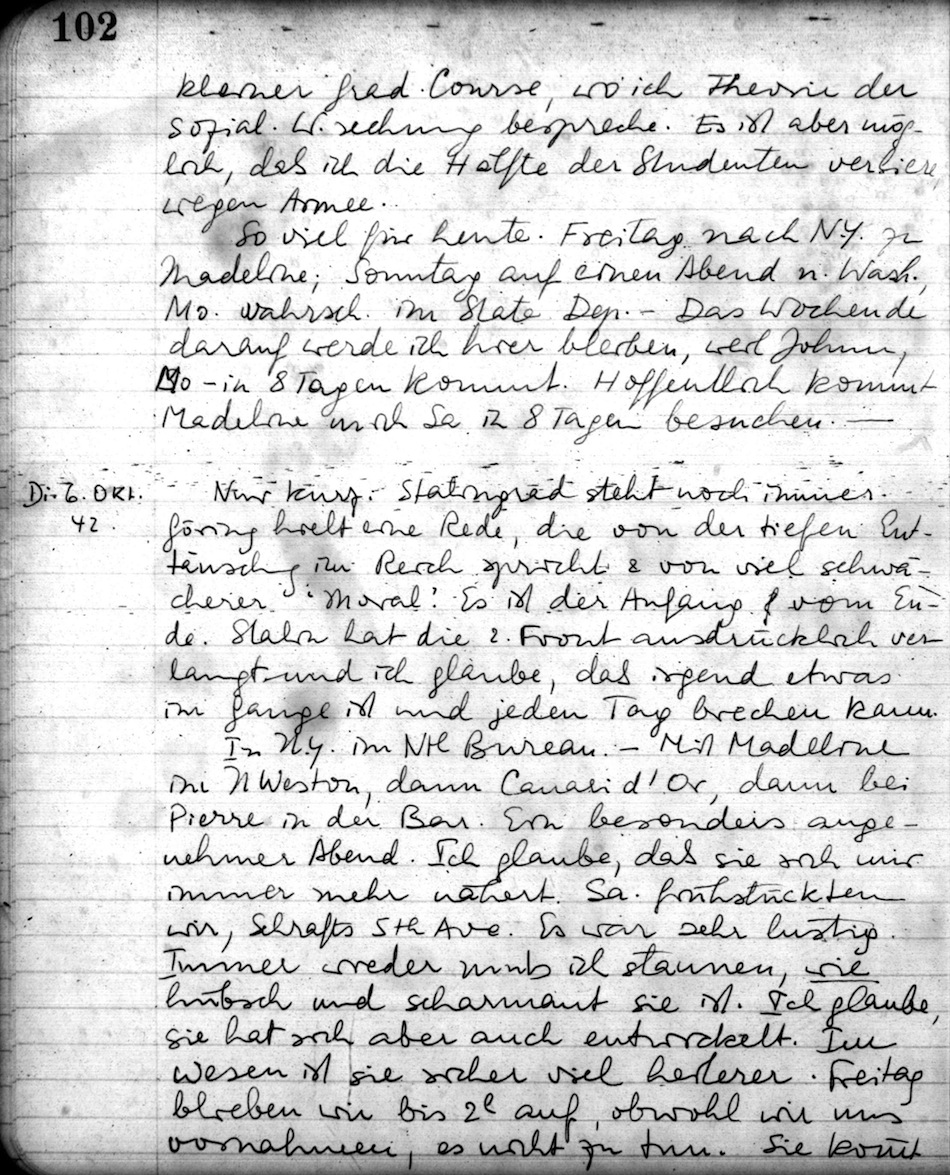 102
kleiner grad. Course, wo ich Theorie der
Sozial. W. rechnung bespreche. Es ist aber mög-
lich, daß ich die Hälfte der Studenten verliere,
wegen Armee.
So viel für heute. Freitag nach N.Y. zu
Madeline; Sonntag auf einen Abend n. Wash.,
Mo. wahrsch. im State Dep. – Das Wochende
darauf werde ich hier bleiben, weil Johnny,
Mo – in 8 Tagen kommt. Hoffentlich kommt
Madeline mich Sa in 8 Tagen besuchen. —
Di. 6. Okt. Nur kurz: Stalingrad steht noch immer.
42. Göring hielt eine Rede, die von der tiefen Ent-
täuschg im Reich spricht & von viel schwä-
cherer 'Moral'. Es ist der Anfang vom En-
de. Stalin hat die 2. Front ausdrücklich ver-
langt und ich glaube, daß irgend etwas
im Gange ist und jeden Tag brechen kann.
In N.Y. im Bureau. – Mit Madeline
im N Weston, dann Canari d'Or, dann bei
Pierre in der Bar. Ein besonders ange-
nehmer Abend. Ich glaube, daß sie sich mir
immer mehr nähert. Sa. frühstückten
wir, Schrafts 5th Ave. Es war sehr lustig.
Immer wieder muß ich staunen, wie
hübsch und scharmant sie ist. Ich glaube,
sie hat sich aber auch entwickelt. Im
Wesen ist sie sicher viel heiterer. Freitag
blieben wir bis 2h auf, obwohl wir uns
vornahmen, es nicht zu tun. Sie kom̄t